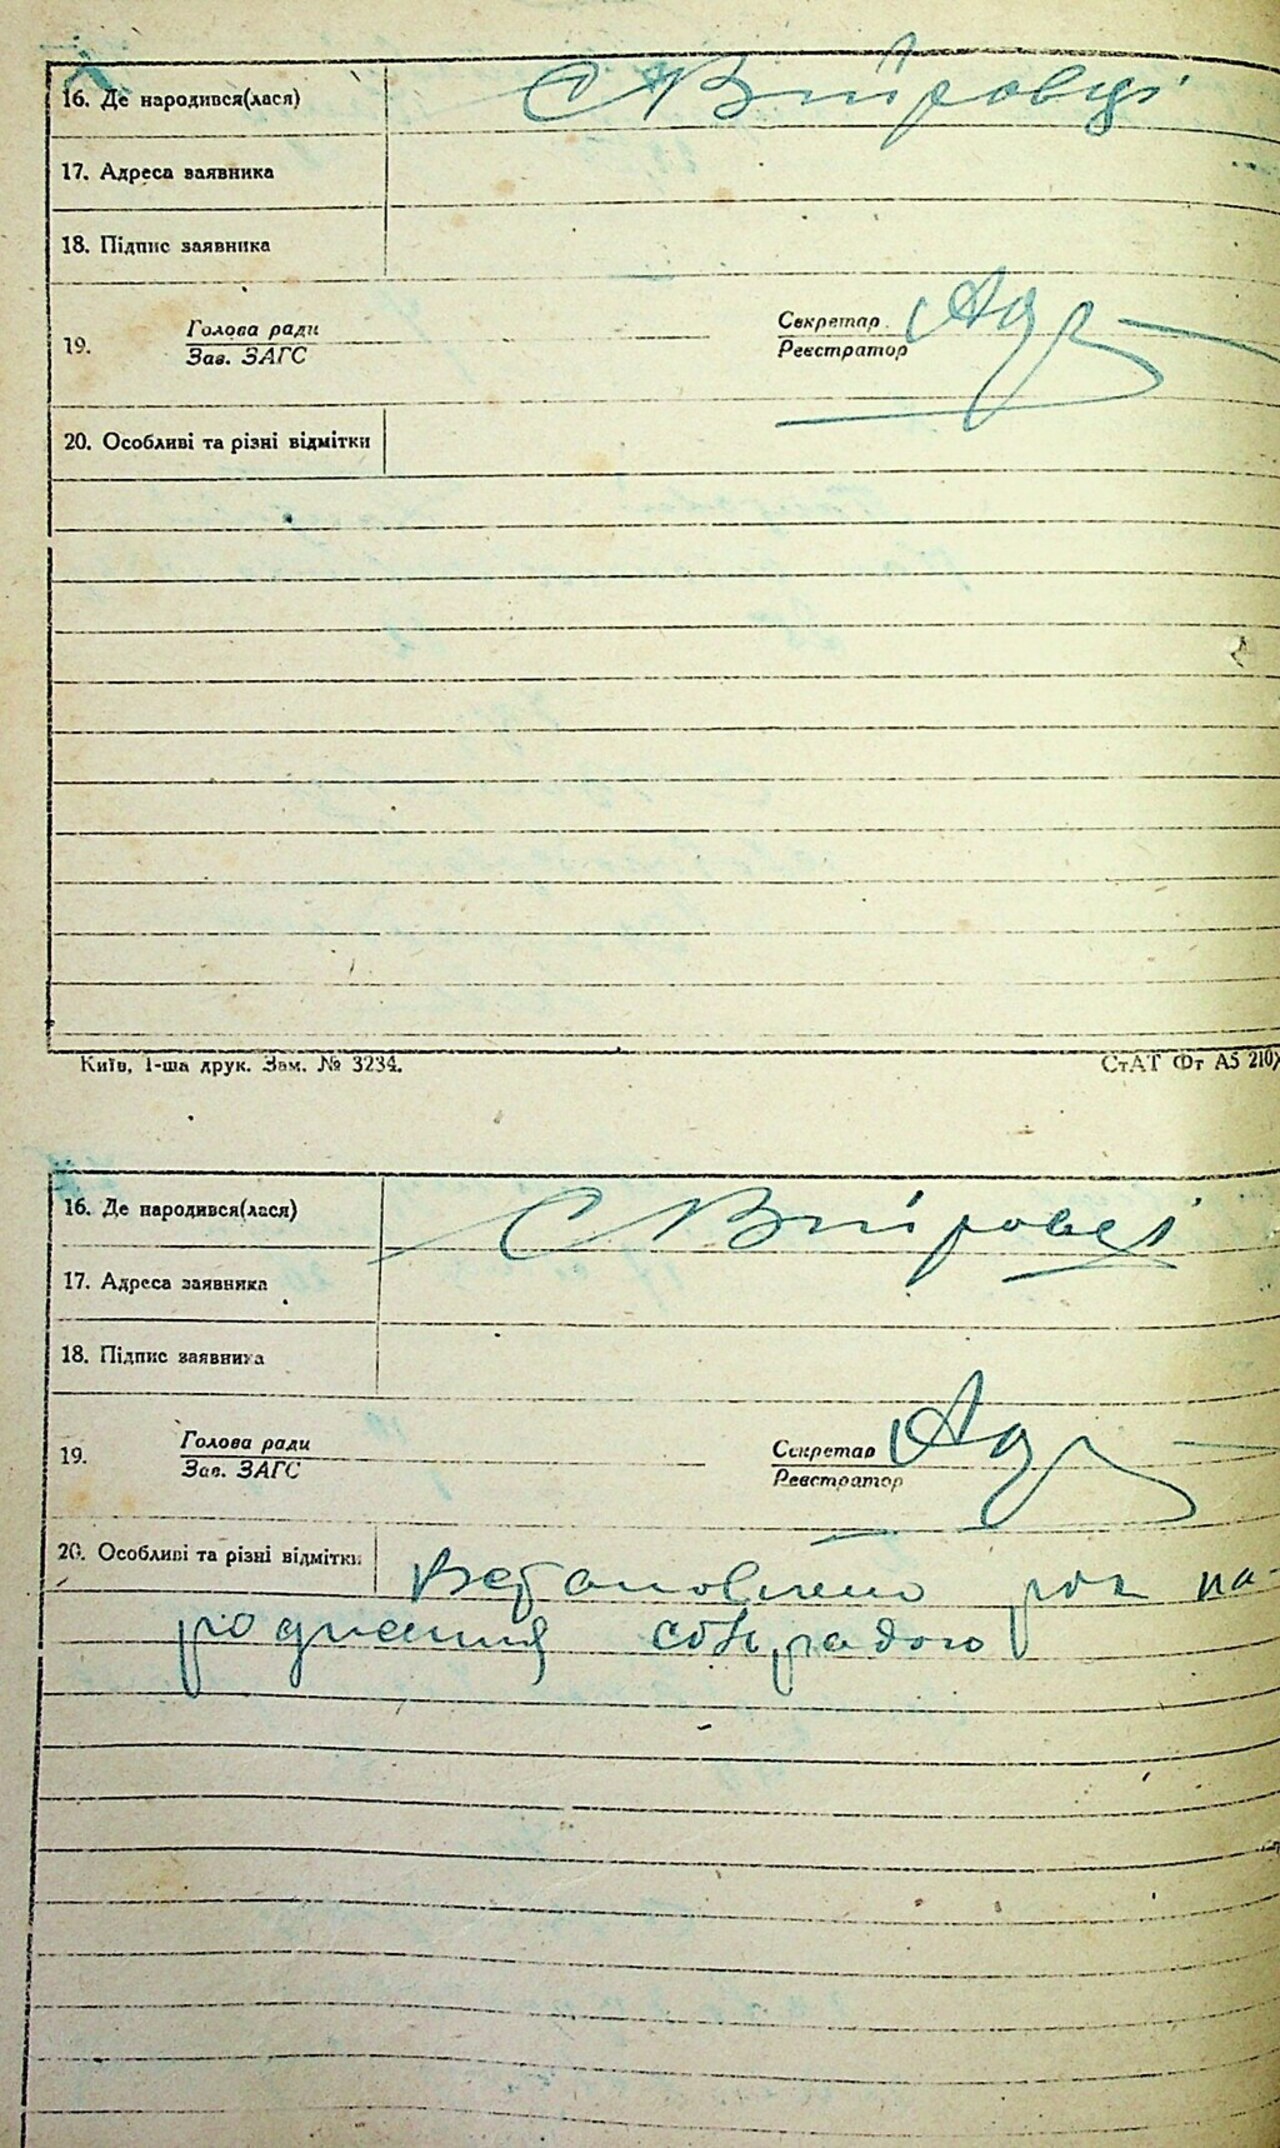 16. Де народився(лася) С Війровці
17. Адреса заявника
18. Підпис заявника
19. Голова ради Секретар
Зав. ЗАГС Реєстратор
20. Особливі та різні відмітки
Київ, 1-ша друк. Зам. № 3234. СтАТ Фт А5 210
16. Де народився(лася) С Війровці
17. Адреса заявника
18. Підпис заявника
19. Голова ради Секретар
Зав. ЗАГС Реєстратор
20. Особливі та різні відмітки Встановлено рок на-
родження сільрадою